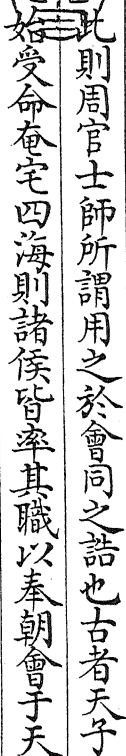 此則周官士師所謂用之於會同之誥也古者天子
始受命奄宅四海則諸侯皆率其職以奉朝會于天